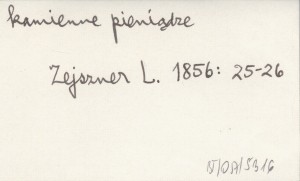 kamienne pieniądze
Zejszner L. 1856: 25-26
N/OA/5316